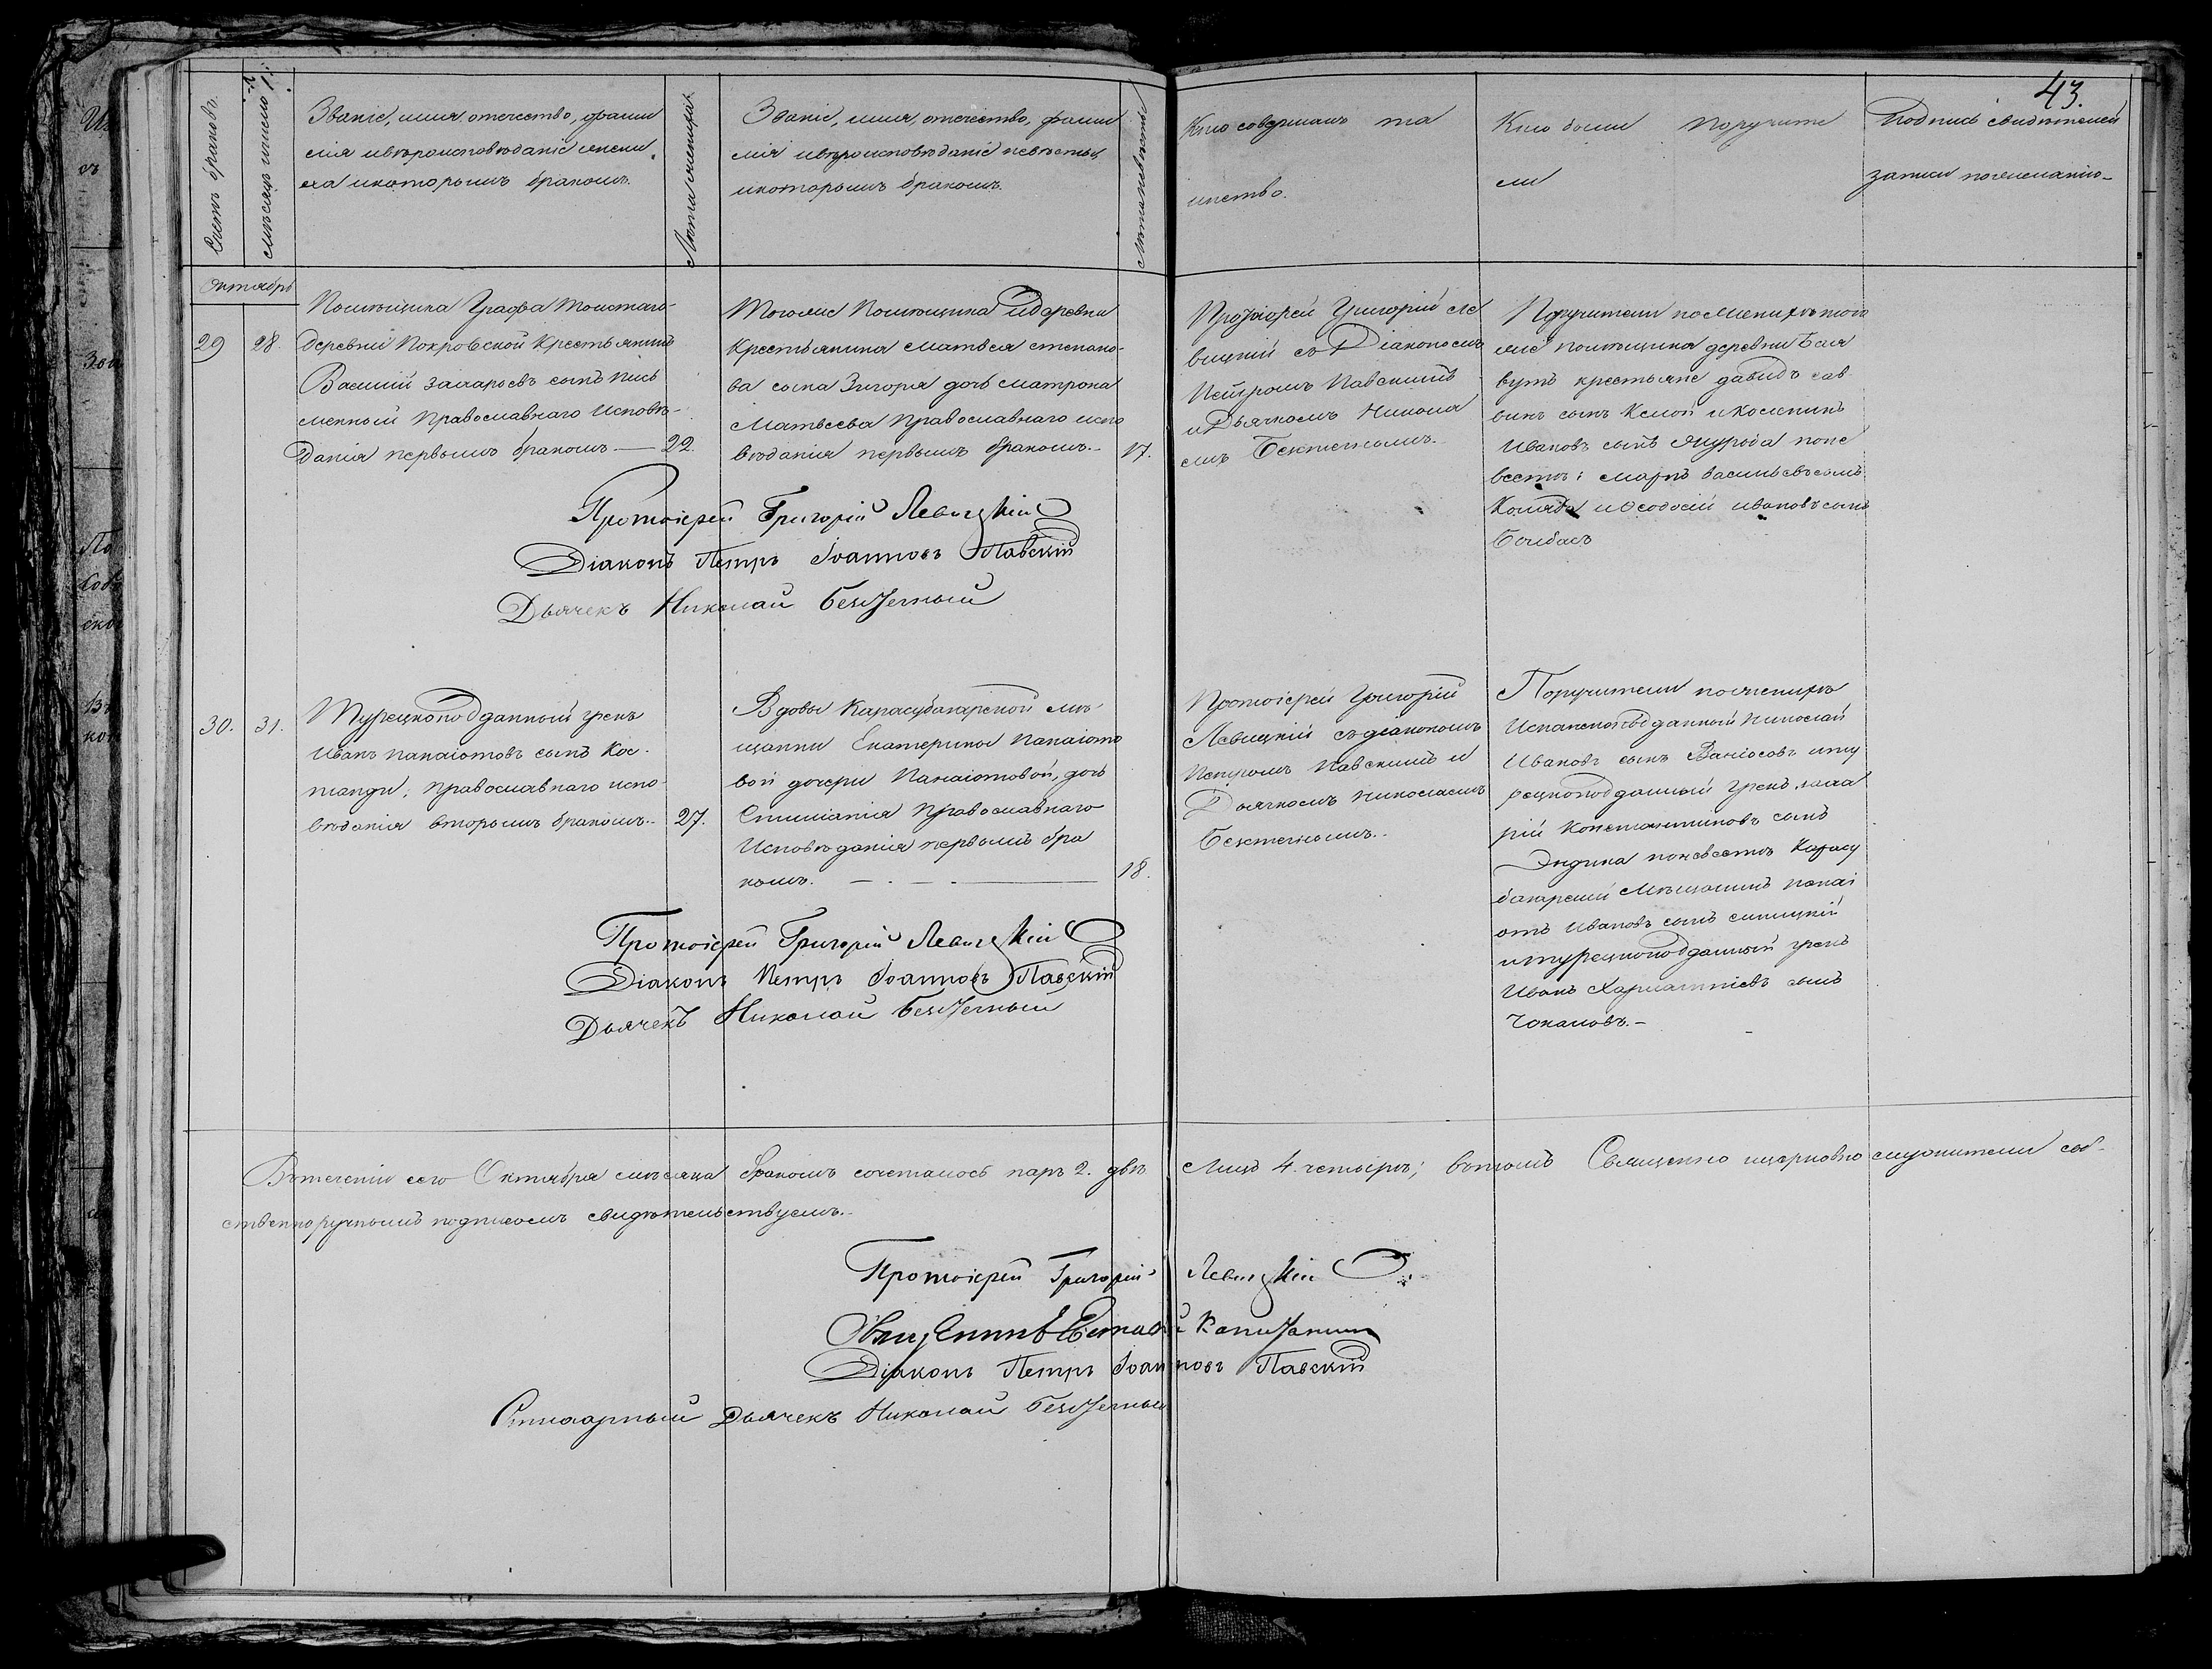 43.
Счетъ браковъ.
мѣсяцъ и число
Званіе, имя, отечество, фами
лія ивѣроисповѣданіе жени
ха икоторымъ бракомъ.
Лѣта жениха.
Званіе, имя, отечество, фами
лія ивѣроисповѣданіе невѣсты,
икоторымъ бракомъ.
Лѣта невѣсты
Кто совершалъ та
инство.
Кто были поручите
ли
Подпись свидѣтелей
записи пожеланію
Октябрь
29
28.
Помѣщика Графа Толстаго
деревни Покровской Крестьянинъ
Василій Захарьевъ сынъ Пись
менный Православнаго Исповѣ-
данія первымъ бракомъ — 22.
Тогоже Помѣщика Идеревни
Крестьянина Матвея степано-
ва сына Зигоря дочь Матрона
Матвеева Православнаго испо
вѣданія первымъ бракомъ.— 17.
Протоіерей Григорій Ле
вицкій съ Діакономъ
Петромъ Павскимъ
и Дьячкомъ Никола
емъ
Поручители по Женихѣ того
же помѣщика деревни
крестьяне давидъ сав
винъ сынъ
Ивановъ сынъ поне
вестѣ: Маркъ васильевъ сынъ
Коляда и Феодосій ивановъ сынъ
Протоіерей Григорій Левицкій
Діаконъ Петръ Іоанновъ Павскій
Дьячекъ Николай
30.
31.
Турецкоподданный грекъ
Иванъ панаіотовъ сынъ Кос-
танди, православнаго испо-
вѣданія вторымъ бракомъ.— 27.
Вдовы Карасубазарской мѣ-
щанки Екатерины Панаіото
вой дочери Панаіотовой, дочь
православнаго
Исповѣданія первымъ бра
комъ. — 18.
Протоіерей Григорій
Левицкій съ діакономъ
Петромъ Павскимъ и
Дьячкомъ Николаемъ
Поручители поженихѣ
Николай
Ивановъ сынъ иту
рецкоподданный грекъ заха
рій Константиновъ сынъ
поневестѣ Карасу
базарскій Мѣщанинъ панаі
отъ Ивановъ сынъ
итурецкоподданный грекъ
Иванъ сынъ
Чокановъ.—
Протоіерей Григорій Левицкій
Діаконъ Петръ Іоанновъ Павскій
Дьячекъ Николай
Втеченіи сего Октября мѣсяца бракомъ сочеталось паръ 2. двѣ Лицъ 4. четыре; втомъ Священно ицерковно служители соб-
ственноручнымъ подписомъ свидѣтельствуемъ.—
Протоіерей Григорій Левицкій
Діаконъ Петръ Іоанновъ Павскій
Дьячекъ Николай